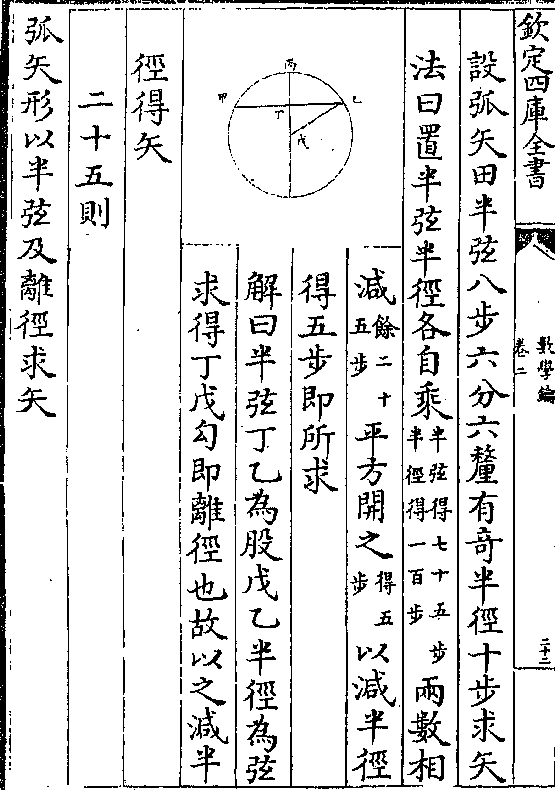 欽定四庫全書
數學鑰
卷二
二十三
設弧矢田半弦八步六分六釐有奇半徑十步求矢
法曰置半弦半徑各自乘半弦得七十五步半徑得一百步兩數相
減餘二十五步平方開之得五步以減半徑
得五步即所求
解曰半弦丁乙為股戊乙半徑為弦
求得丁戊勾即離徑也故以之減半
丙
甲
乙
丁
戊
徑得矢
二十五則
弧矢形以半弦及離徑求矢